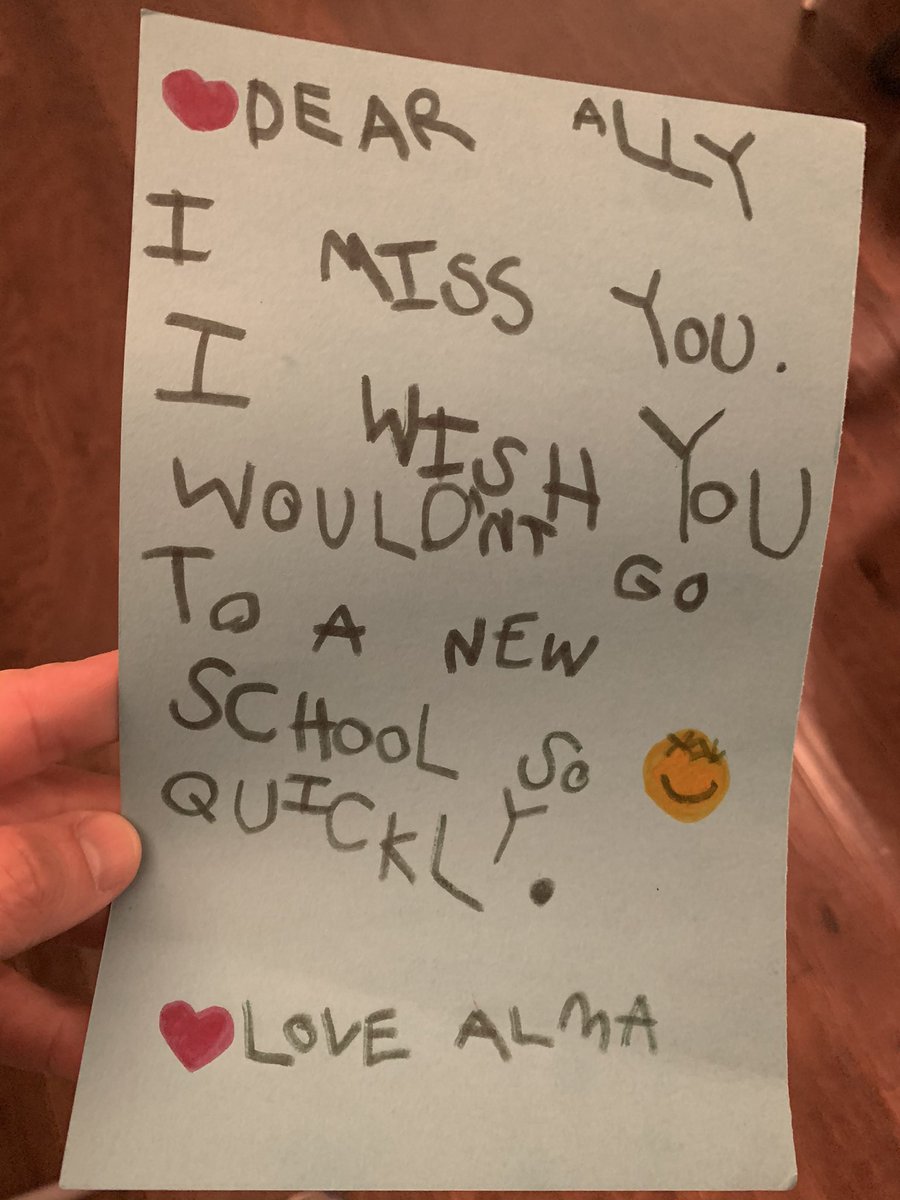 DEAR ALLY
I MISS YOU.
I WISH YOU
WOULD'NT GO
TO A NEW
SCHOOL SO
QUICKLY.
LOVE ALMA